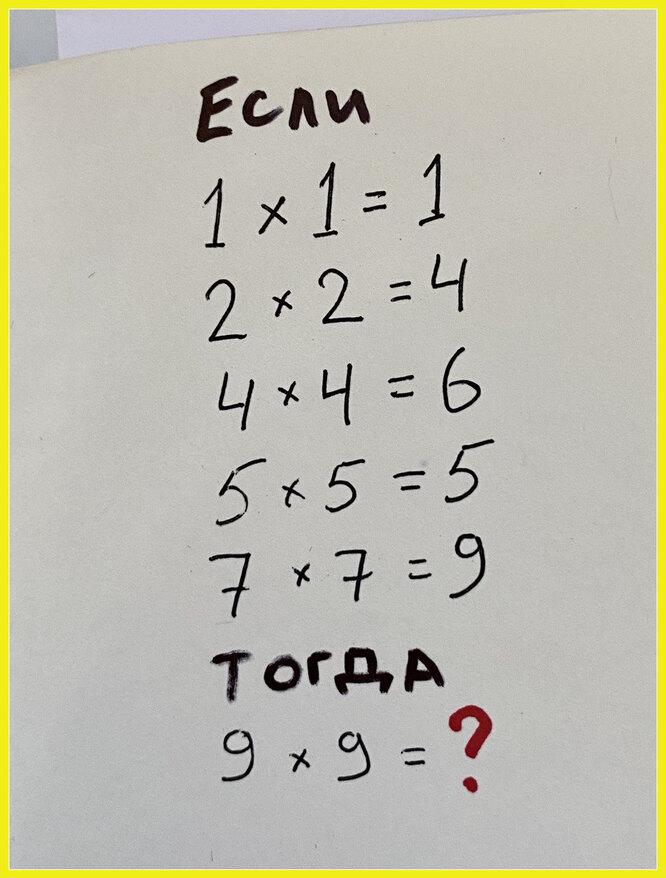 Если
1 × 1 = 1
2 × 2 = 4
4 × 4 = 6
5 × 5 = 5
7 × 7 = 9
тогда
9 × 9 = ?